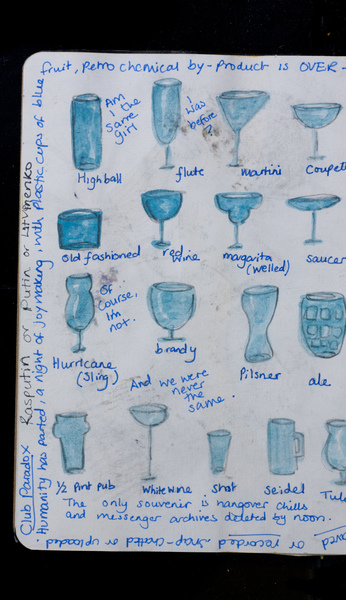 Club Paradox Rasputin or Putin or Litvinenko
Humanity has parted, a night of joymaking, with plastic cups of blue
fruit, Petro chemical by-Product is OVER-
Am
I the
same
girl
I
was
before
?
Highball
flute
martini
Coupett
old fashioned
red
wine
margarita
(welled)
saucer
Of
course,
I'm
not.
Hurricane
(Sling)
brandy
Pilsner
ale
And we were
never
the
same.
1/2 Pint pub
White wine
Shot
Seidel
Tul
The only souvenir is hangover chills
and messenger archives deleted by noon.
or recorded snap-chatted or uploaded.